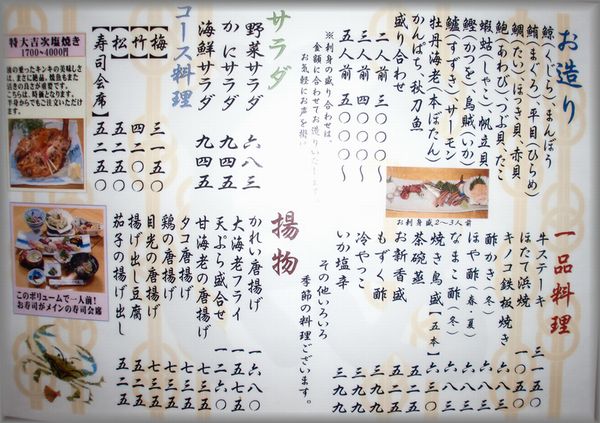 お造り
鯨(くじら)、まんぼう
鮪(まぐろ)、平目(ひらめ)
鯛(たい)、ほっき貝、赤貝
鮑(あわび)、つぶ貝、たこ
蝦蛄(しゃこ)、帆立貝
鰹(かつを)、烏賊(いか)
鱸(すずき)、サーモン
牡丹海老(本ぼたん)
かんぱち、秋刀魚
盛り合わせ
二人前 三〇〇〇〜
三人前 四〇〇〇〜
五人前 五〇〇〇〜
※刺身の盛り合わせは、
金額に合わせてお造りいたします
お気軽にお声を掛
お刺身盛2〜3人前
サラダ
野菜サラダ 六八三
かにサラダ 九四五
海鮮サラダ 九四五
コース料理
【梅】 三一五〇
【竹】 四二〇〇
【松】 五二五〇
【寿司会席】 五二五〇
特大吉次塩焼き
1700〜4000円
脂の乗ったキンキの美味しさ
は、まさに絶品。焼魚もまた
活きの良さが重要です。
こちらは、時価となります。
半身からでもご注文いただけ
ます。
このボリュームで一人前!
お寿司がメインの寿司会席
一品料理
牛ステーキ 三一五〇
ほたて浜焼 一〇五〇
キノコ鉄板焼き 八四〇
酢かき(冬) 八四〇
ほや酢(春・夏) 六八三
なまこ酢(冬) 六八三
焼き鳥盛【五本】 六三〇
茶碗蒸 五二五
お新香盛 五二五
もずく酢 三九九
冷やっこ 三九九
いか塩辛 三九九
その他いろいろ
季節の料理ございます。
揚物
かれい唐揚げ 一六八〇
大海老フライ 一二六〇
天ぷら盛合せ 一二六〇
甘海老の唐揚げ 七三五
タコ唐揚げ 七三五
鶏の唐揚げ 七三五
目光の唐揚げ 五二五
揚げ出し豆腐 五二五
茄子の揚げ出し 五二五